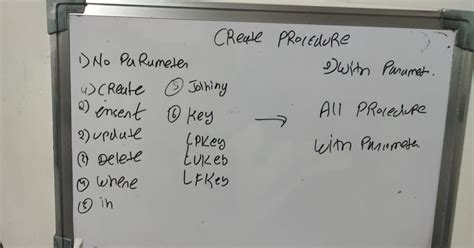 CReate PROCEDURE
1) No PaRameter
a) CReate
2) insent
2) update
3) Delete
4) where
5) in
5) Joining
6) Key
LPKey
LUKey
LFKey
→
2) With Paramet.
All PROCeDURe
With Parameter